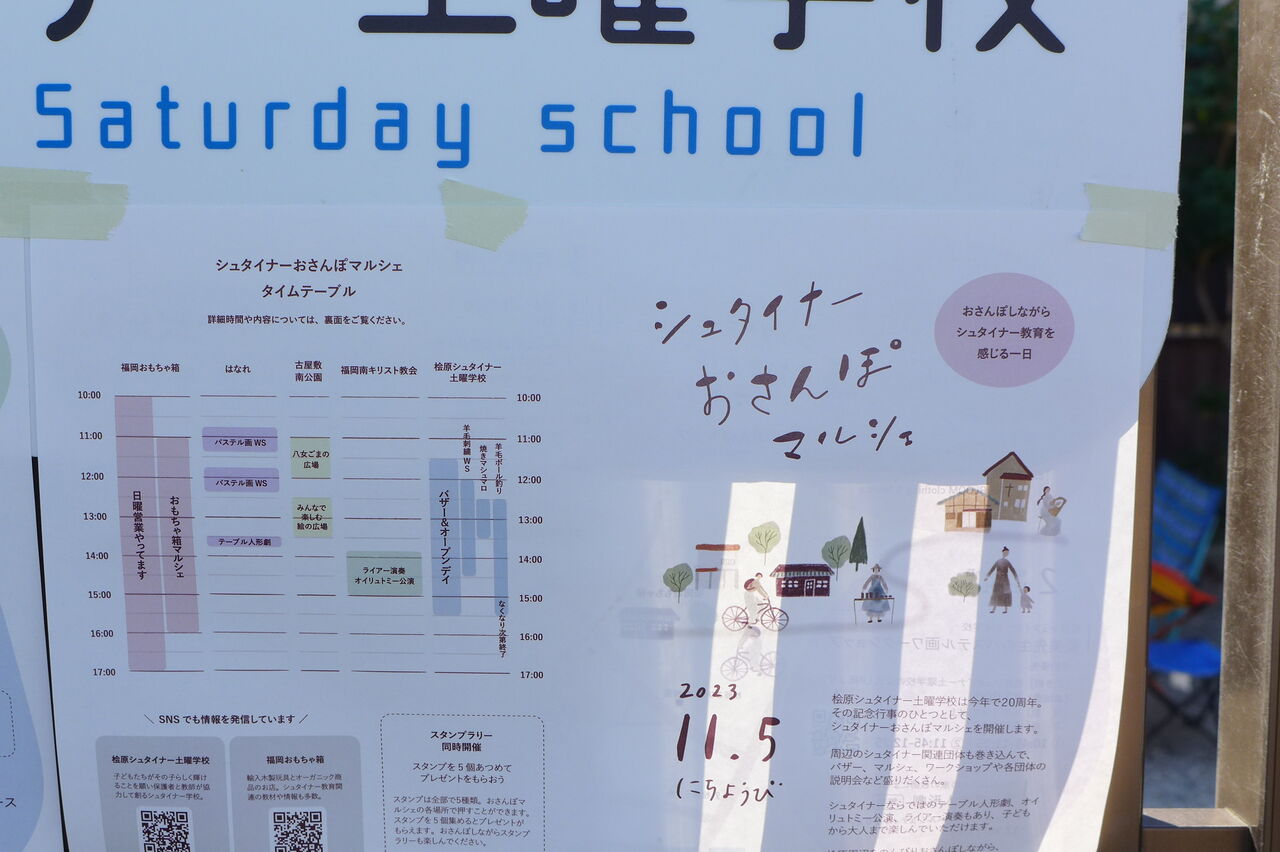 土曜学校
Saturday school
シュタイナーおさんぽマルシェ
タイムテーブル
詳細時間や内容については、裏面をご覧ください。
福岡おもちゃ箱
はなれ
古屋敷
南公園
福岡南キリスト教会
桧原シュタイナー
土曜学校
10:00
11:00
12:00
13:00
14:00
15:00
16:00
17:00
日曜営業やってます
おもちゃ箱マルシェ
パステル画WS
パステル画WS
テーブル人形劇
八女ごまの
広場
みんなで
楽しむ
絵の広場
ライアー演奏
オイリュトミー公演
バザー&オープンデイ
羊毛刺繍WS
焼きマシュマロ
羊毛ボール釣り
なくなり次第終了
10:00
11:00
12:00
13:00
14:00
15:00
16:00
17:00
SNSでも情報を発信しています
桧原シュタイナー土曜学校
子どもたちがその子らしく輝け
ることを願い保護者と教師が協
力して創るシュタイナー学校。
福岡おもちゃ箱
輸入木製玩具とオーガニック商
品のお店。シュタイナー教育関
連の教材や情報も多数。
スタンプラリー
同時開催
スタンプを5個あつめて
プレゼントをもらおう
スタンプは全部で5種類。おさんぽマ
ルシェの各場所で押すことができます。
スタンプを5個集めるとプレゼントが
もらえます。おさんぽしながらスタンプ
ラリーも楽しんでください。
シュタイナー
おさんぽ
マルシェ
おさんぽしながら
シュタイナー教育を
感じる一日
2023
11.5
(にちようび
桧原シュタイナー土曜学校は今年で20周年。
その記念行事のひとつとして、
シュタイナーおさんぽマルシェを開催します。
周辺のシュタイナー関連団体も巻き込んで、
バザー、マルシェ、ワークショップや各団体の
説明会など盛りだくさん。
シュタイナーならではのテーブル人形劇、オイ
リュトミー公演、ライアー演奏もあり、子ども
から大人まで楽しんでいただけます。